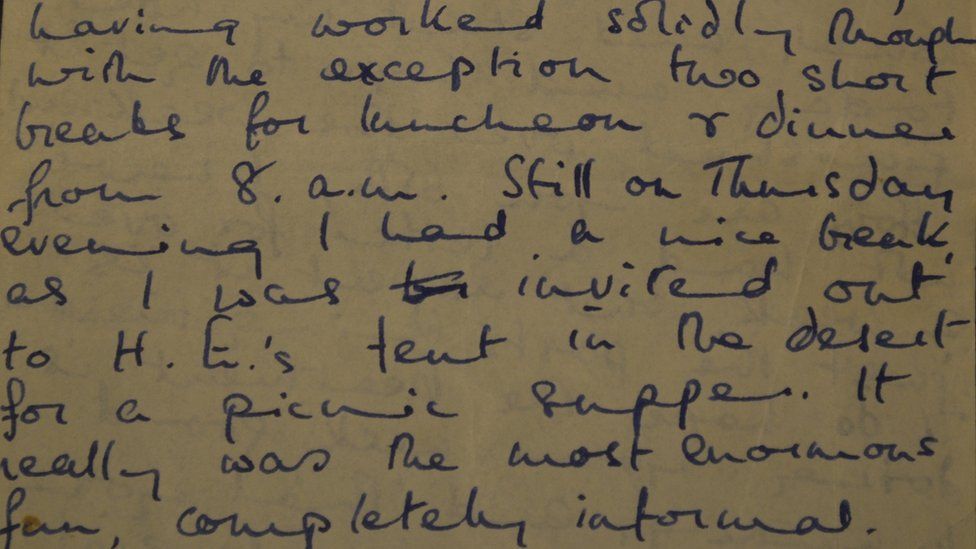 having worked solidly through
with the exception two short
breaks for luncheon & dinner
from 8.a.m. Still on Thursday
evening I had a nice break,
as I was invited out
to H.E.'s tent in the desert
for a picnic supper. It
really was the most enormous
fun, completely informal.